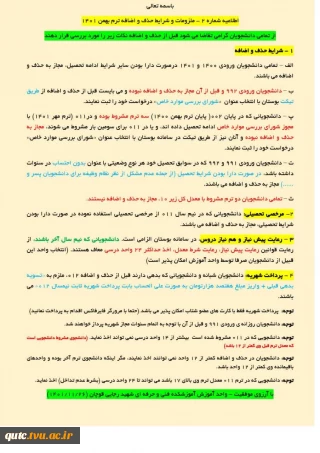 باسمه تعالی
اطلاعیه شماره ۲ - ملزومات و شرایط حذف و اضافه ترم بهمن ۱۴۰۱
از تمامی دانشجویان گرامی تقاضا می شود قبل از حذف و اضافه نکات زیر را مورد بررسی قرار دهند
۱ - شرایط حذف و اضافه
الف - تمامی دانشجویان ورودی ۱۴۰۰ و ۱۴۰۱ درصورت دارا بودن سایر شرایط ادامه تحصیل، مجاز به حذف و
اضافه می باشند.
ب - دانشجویان ورودی ۹۹۲ و قبل از آن مجاز به حذف و اضافه نبوده و می بایست قبل از حذف و اضافه از طریق
تیکت بوستان با انتخاب عنوان «شورای بررسی موارد خاص» درخواست خود را ثبت نمایند.
پ - دانشجویانی که در پایان ۰۰۲ (پایان ترم بهمن ۱۴۰۰) سه ترم مشروط بوده و در ۰۱۱ (ترم مهر ۱۴۰۱) با
مجوز شورای بررسی موارد خاص ادامه تحصیل داده اند، و یا در ۰۱۱ برای سومین بار مشروط می شوند، مجاز به
حذف و اضافه نبوده و آنان نیز از طریق تیکت در سامانه بوستان با انتخاب عنوان «شورای بررسی موارد خاص»
درخواست خود را ثبت نمایند.
ت - دانشجویان ورودی ۹۹۱ و ۹۹۲ که در سوابق تحصیل خود هر نوع وضعیتی با عنوان بدون احتساب در سنوات
داشته باشد، در صورت دارا بودن شرایط تحصیل (از جمله عدم مشکل از نظر نظام وظیفه برای دانشجویان پسر و
......) مجاز به حذف و اضافه می باشند.
ث - تمامی دانشجویان دو ترم مشروط با معدل کل زیر ۱۰، مجاز به حذف و اضافه نیستند.
۲- مرخصی تحصیلی: دانشجویانی که در نیم سال ۰۱۱ از مرخصی تحصیلی استفاده نموده در صورت دارا بودن
شرایط تحصیلی، مجاز به حذف و اضافه می باشند.
۳ - رعایت پیش نیاز و هم نیاز دروس، در سامانه بوستان الزامی است. دانشجویانی که نیم سال آخر باشند، از
رعایت قوانین رعایت پیش نیاز، رعایت شرط معدل، اخذ حداکثر ۲۴ واحد درسی معاف هستند. (انتخاب واحد این
قبیل از دانشجویان صرفا توسط واحد آموزش امکان پذیر است)
۴ - پرداخت شهریه: دانشجویان شبانه و دانشجویانی که بدهی دارند قبل از حذف و اضافه ۰۱۲، ملزم به «تسویه
بدهی قبلی + واریز مبلغ هفتصد هزارتومان به صورت علی الحساب بابت پرداخت شهریه ثابت نیمسال ۰۱۲» می
باشند.
توجه: پرداخت شهریه فقط با کارت های عضو شتاب امکان پذیر می باشد (حتما با مرورگر فایرفاکس اقدام به پرداخت نمایید)
توجه: دانشجویان روزانه ی ورودی ۹۹۱ و قبل از آن با توجه به اتمام سنوات مجاز شهریه پرداز خواهند شد.
توجه: دانشجویی که در ۰۱۱ مشروط شده است بیشتر از ۱۴ واحد درسی نمی تواند اخذ نماید. (دانشجوی مشروط دانشجویی است
که معدل ترم قبل وی کمتر از ۱۲ باشد)
توجه: دانشجویان در حذف و اضافه کمتر از ۱۲ واحد نمی توانند اخذ نمایند، مگر اینکه دانشجوی ترم آخر بوده و واحدهای
باقیمانده وی کمتر از ۱۲ واحد باشد.
توجه: دانشجویی که در ترم ۰۱۱ معدل ترم وی بالای ۱۷ باشد می تواند تا ۲۴ واحد درسی (بشرط عدم تداخل) اخذ نماید.
با آرزوی موفقیت - واحد آموزش آموزشکده فنی و حرفه ای شهید رجایی قوچان (۱۴۰۱/۱۱/۲۶)
quic.tvu.ac.ir